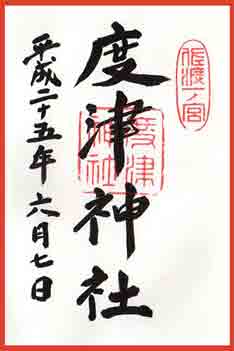 佐渡一ノ宮
度津神社
度津神社
平成二十五年六月七日